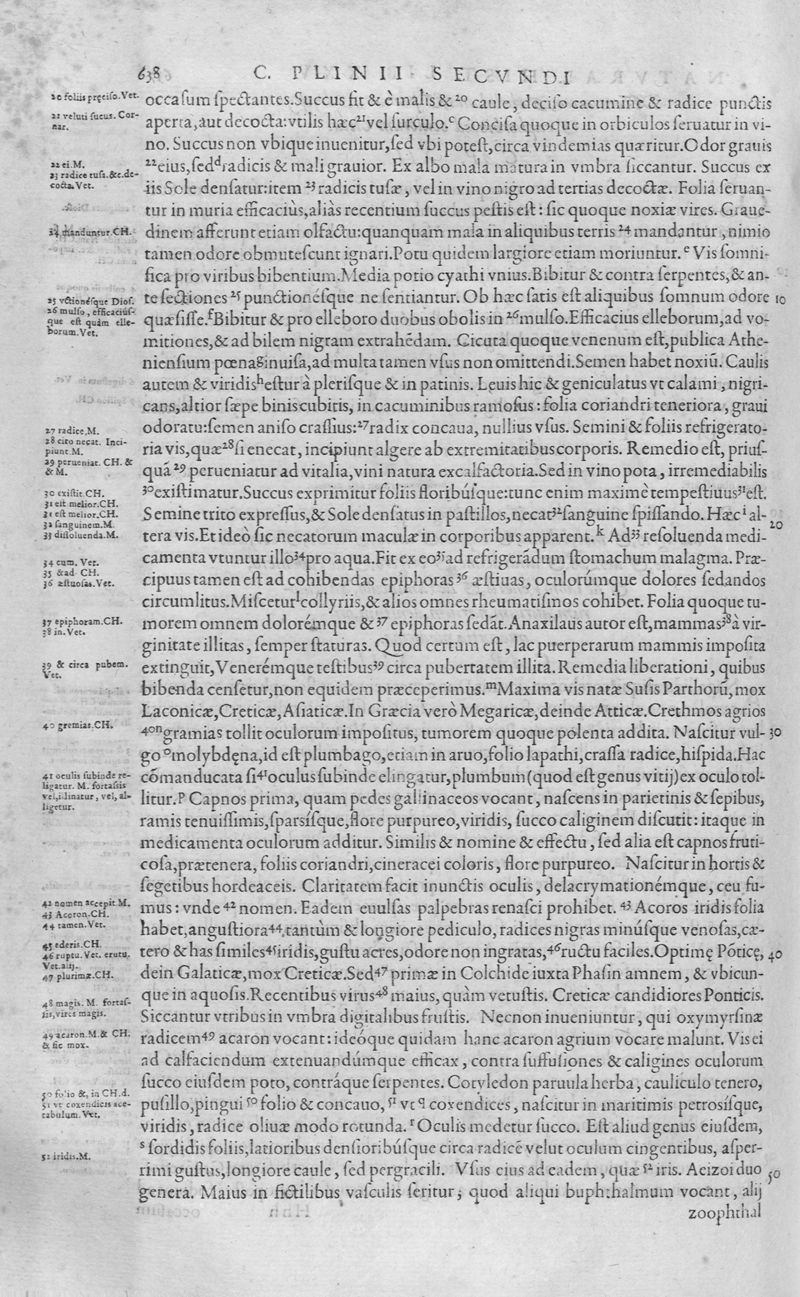 638 C. PLINII SECVNDI
occaſum ſpectantes.Succus fit & è malis &²⁰ caule, deciſo cacumine & radice punctis
aperta,aut decocta:vtilis hæc²¹vel ſurculo.ᶜ Conciſa quoque in orbiculos ſeruatur in vi-
no. Succus non vbique inuenitur,ſed vbi poteſt,circa vindemias quæritur.Odor grauis
²²eius,ſedᵈradicis & mali grauior. Ex albo mala matura in vmbra ſiccantur. Succus ex
iis Sole denſatur:item ²³ radicis tuſæ, vel in vino nigro ad tertias decoctæ. Folia ſeruan-
tur in muria efficaciùs,aliàs recentium ſuccus peſtis eſt: ſic quoque noxiæ vires. Graue-
dinem afferunt etiam olfactu:quanquam mala in aliquibus terris ²⁴ mandantur, nimio
tamen odore obmuteſcunt ignari.Potu quidem largiore etiam moriuntur.ᵉ Vis ſomni-
fica pro viribus bibentium.Media potio cyathi vnius.Bibitur & contra ſerpentes,& an-
te ſectiones ²⁵ punctionéſque ne ſentiantur. Ob hæc ſatis eſt aliquibus ſomnum odore 10
quæſiſſe.ᶠBibitur & pro elleboro duobus obolis in ²⁶mulſo.Efficacius elleborum,ad vo-
mitiones,& ad bilem nigram extrahēdam. Cicuta quoque venenum eſt,publica Athe-
nienſium pœnaᵍinuiſa,ad multa tamen vſus non omittendi.Semen habet noxiū. Caulis
autem & viridisʰeſtur à pleriſque & in patinis. Leuis hic & geniculatus vt calami, nigri-
cans,altior ſæpe binis cubitis, in cacuminibus ramoſus: folia coriandri teneriora, graui
odoratu:ſemen aniſo craſſius:²⁷radix concaua, nullius vſus. Semini & foliis refrigerato-
ria vis,quæ²⁸ſi enecat, incipiunt algere ab extremitatibus corporis. Remedio eſt, priuſ-
quā ²⁹ perueniatur ad vitalia,vini natura excalfactoria.Sed in vino pota, irremediabilis
³⁰exiſtimatur.Succus exprimitur foliis floribúſque:tunc enim maximè tempeſtiuus³¹eſt.
Semine trito expreſſus,& Sole denſatus in paſtillos,necat³²ſanguine ſpiſſando. Hæcⁱ al- 20
tera vis.Et ideò ſic necatorum maculæ in corporibus apparent.ᵏ Ad³³ reſoluenda medi-
camenta vtuntur illo³⁴pro aqua.Fit ex eo³⁵ad refrigerādum ſtomachum malagma. Præ-
cipuus tamen eſt ad cohibendas epiphoras ³⁶ æſtiuas, oculorúmque dolores ſedandos
circumlitus.Miſceturˡcollyriis,& alios omnes rheumatiſmos cohibet. Folia quoque tu-
morem omnem dolorémque & ³⁷ epiphoras ſedāt.Anaxilaus autor eſt,mammas³⁸à vir-
ginitate illitas, ſemper ſtaturas. Quod certum eſt, lac puerperarum mammis impoſita
extinguit,Venerémque teſtibus³⁹ circa pubertatem illita. Remedia liberationi, quibus
bibenda cenſetur,non equidem præceperimus.ᵐMaxima vis natæ Suſis Parthorū,mox
Laconicæ,Creticæ,Aſiaticæ.In Græcia verò Megaricæ,deinde Atticæ.Crethmos agrios
⁴⁰ⁿgramias tollit oculorum impoſitus, tumorem quoque polenta addita. Naſcitur vul- 30
go ᵒmolybdęna,id eſt plumbago,etiam in aruo,folio lapathi,craſſa radice,hiſpida.Hac
cōmanducata ſi⁴¹oculus ſubinde elingatur,plumbum(quod eſt genus vitij)ex oculo tol-
litur.ᵖ Capnos prima, quam pedes gallinaceos vocant, naſcens in parietinis & ſepibus,
ramis tenuiſſimis,ſparſiſque,flore purpureo,viridis, ſucco caliginem diſcutit: itaque in
medicamenta oculorum additur. Similis & nomine & effectu, ſed alia eſt capnos fruti-
coſa,prætenera, foliis coriandri,cineracei coloris, flore purpureo. Naſcitur in hortis &
ſegetibus hordeaceis. Claritatem facit inunctis oculis, delacrymationémque, ceu fu-
mus: vnde ⁴² nomen. Eadem euulſas palpebras renaſci prohibet. ⁴³ Acoros iridis folia
habet,anguſtiora⁴⁴,tantùm & longiore pediculo, radices nigras minúſque venoſas,cæ-
tero & has ſimiles⁴⁵iridis,guſtu acres,odore non ingratas,⁴⁶ructu faciles.Optimę Pōticę, 40
dein Galaticæ,mox Creticæ.Sed⁴⁷ primæ in Colchide iuxta Phaſin amnem, & vbicun-
que in aquoſis.Recentibus virus⁴⁸ maius, quàm vetuſtis. Creticæ candidiores Ponticis.
Siccantur vtribus in vmbra digitalibus fruſtis. Necnon inueniuntur, qui oxymyrſinæ
radicem⁴⁹ acaron vocant: ideóque quidam hanc acaron agrium vocare malunt. Vis ei
ad calfaciendum extenuandúmque efficax, contra ſuffuſiones & caligines oculorum
ſucco eiuſdem poto, contráque ſerpentes. Cotyledon paruula herba, cauliculo tenero,
puſillo,pingui ⁵⁰ folio & concauo, ⁵¹ vt ᑫ coxendices, naſcitur in maritimis petroſiſque,
viridis, radice oliuæ modo rotunda.ʳ Oculis medetur ſucco. Eſt aliud genus eiuſdem,
ˢ ſordidis foliis,latioribus denſioribúſque circa radicē velut oculum cingentibus, aſper-
rimi guſtus,longiore caule, ſed pergracili. Vſus eius ad eadem, quæ ⁵² iris. Aeizoi duo 50
genera. Maius in fictilibus vaſculis ſeritur; quod aliqui buphthalmum vocant, alij
zoophthal
20 foliis pręciſo.Vet.
21 veluti ſucus. Cor-
nar.
22 ei.M.
23 radice tuſa.&c.de-
cocta.Vet.
24 manduntur CH.
25 vctionéſque Dioſ.
26 mulſo, efficaciúſ-
que eſt quàm elle-
borum.Vet.
27 radice.M.
28 cito necat. Inci-
piunt M.
29 perueniat. CH. &
& M.
30 exiſtit.CH.
31 eſt melior.CH.
32 ſanguinem.M.
33 diſſoluenda.M.
34 cum. Vet.
35 &ad CH.
36 æſtuoſas.Vet.
37 epiphoram.CH.
38 in.Vet.
39 & circa pubem.
Vet.
40 gremias.CH.
41 oculis ſubinde re-
ligatur. M. fortaſſis
vel,illinatur, vel, al-
ligetur.
42 nomen accepit M.
43 Acoron.CH.
44 tamen.Vet.
45 ederis.CH.
46 ruptu. Vet. erutu.
Vet.alij.
47 plurimæ.CH.
48 magis. M. fortaſ-
ſis,vires magis.
49 acaron.M.& CH.
& ſic mox.
50 folio &, in CH.d.
51 vt coxendicis ace-
tabulum.Vet.
52 iridis.M.